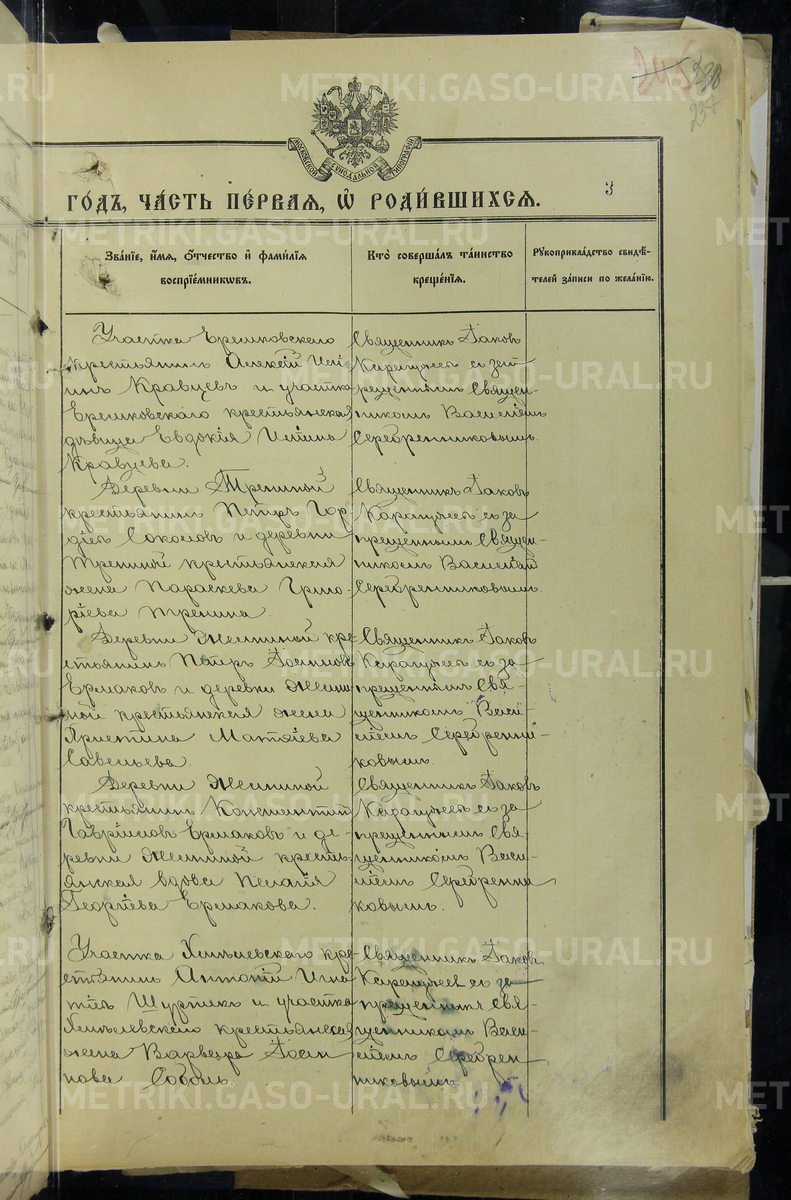 METRIKI.GASO-URAL.RU
238
237
МОСКОВСКОЙ СѴНОДАЛЬНОЙ ТИПОГРАФІИ
ГО́ДЪ, ЧА́СТЬ ПЕ́РВАЯ, Ѡ҆ РОДИ́ВШИХСЯ.
3
Зва́нїе, и҆́мя, ѻ҆́тчество и҆ фами́лїя
воспрїе́мникѡвъ.
Кто̀ соверша́лъ та́инство
креще́нїѧ.
Рꙋкоприкла́дство свидѣ́-
телей за́писи по жела́нїю.
Участка Ерешковскаго
крестьянинъ Алексій
инъ Кравцевъ и участка
Ерешковскаго крестьянская
дѣвица Евдокія
Кравцева.
Священникъ Іаковъ
съ
рещеннымъ Священ-
никомъ Василіемъ
Серебренниковымъ.
Деревни Трениной
крестьянинъ Петръ Гор-
діевъ Соколовъ и деревни
Трениной крестьянская
жена Параскева Григо-
ріева Тренина.
Священникъ Іаковъ
съ за-
прещеннымъ Священ-
никомъ Василіемъ
Серебренниковымъ.
Деревни Жилиной кре-
стьянинъ Петръ Іосифовъ
Ермаковъ и деревни Жили-
ной крестьянская жена
Христина Матѳіева
Савельева.
Священникъ Іаковъ
съ за-
прещеннымъ Свя-
щенникомъ Васи-
ліемъ Серебренни-
ковымъ.
Деревни Жилиной
крестьянинъ Константинъ
Гавриловъ Ермаковъ и де-
ревни Жилиной кресть-
янская вдова Пелагія
Георгіева Ермакова.
Священникъ Іаковъ
съ за-
прещеннымъ Свя-
щенникомъ Васи-
ліемъ Серебренни-
ковымъ.
Участка кре-
стьянинъ Антоній Игна-
тіевъ Шуртикъ и участка
крестьянская
жена Варвара Іоси-
пова Соболь.
Священникъ Іаковъ
съ за-
прещеннымъ Свя-
щенникомъ Васи-
ліемъ Серебрен-
никовымъ.
METRIKI.GASO-URAL.RU